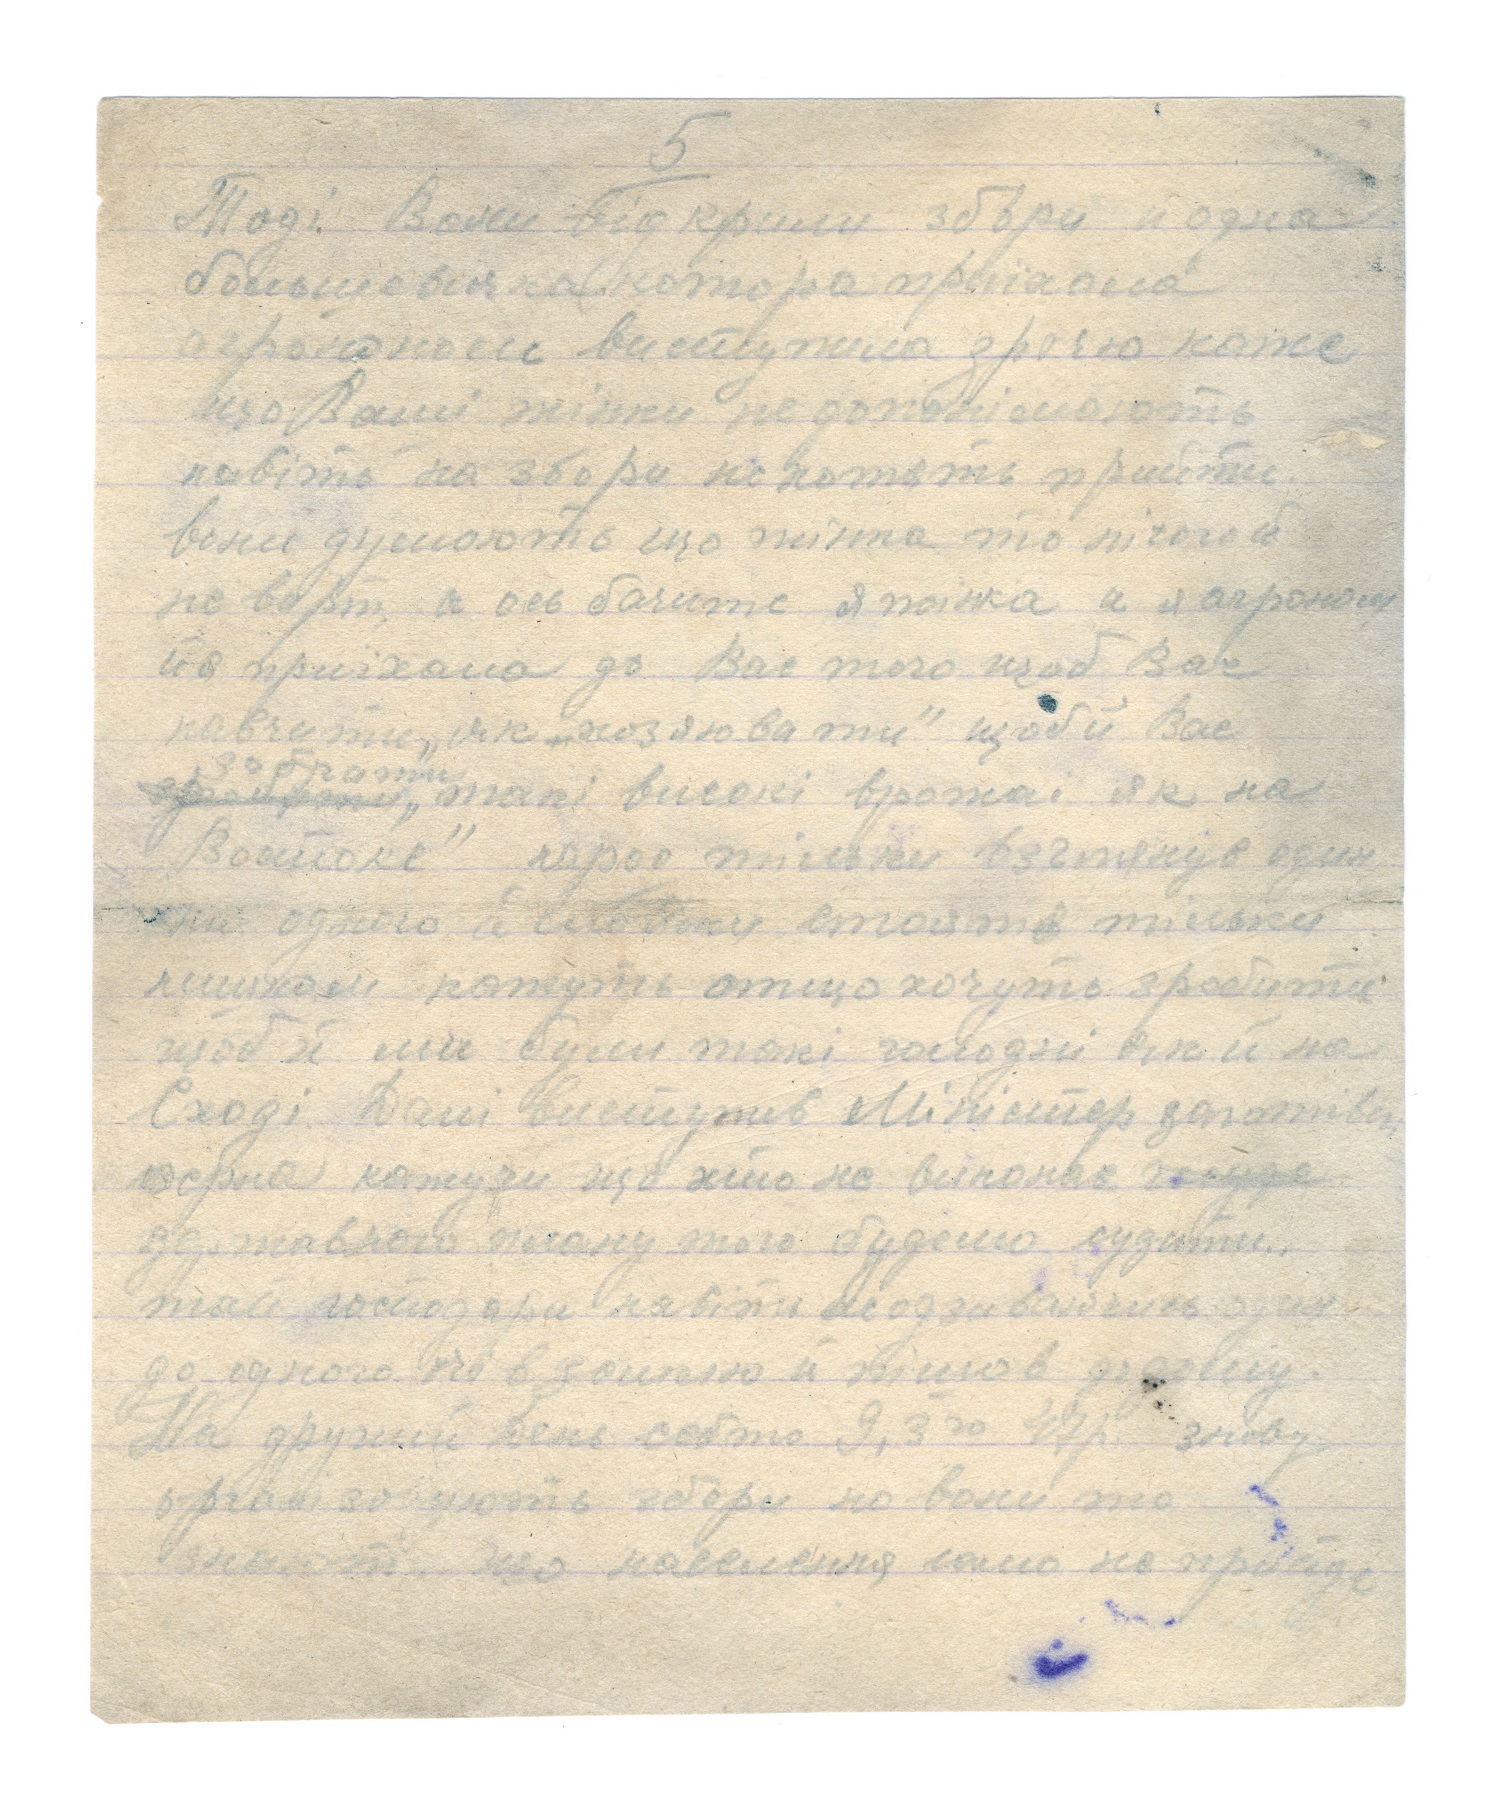 5
Тоді Вони відкрили збори й одна
большовичка котора приїхала
агрономом виступила зрочю каже
що Ваші жінки не допомімають
навіть на збори не хотять прийти.
вони думають що жінка то нічого й
не варт. а ось бачите я жінка а я агроном
й я приїхала до Вас того щоб Вас
навчити „як хозяювати" щоб й Вас
зобрати
„такі високі врожаї як на
Востоке" народ тільки взглянув один
на одного й стоять тільки
нишком кажуть отщо хочуть зробити
щоб й ми були такі голодні як й на
Сході. Далі виступив Міністер заготівлі
зерна кажучи що хто не виконає
державного плану того будемо судити.
тай господари навіть не одзиваючись один
до одного й пішов додому.
На другий день собто 9, 3 го 47р. знову
організовують збори но вони то
знают. що населення само не прийде